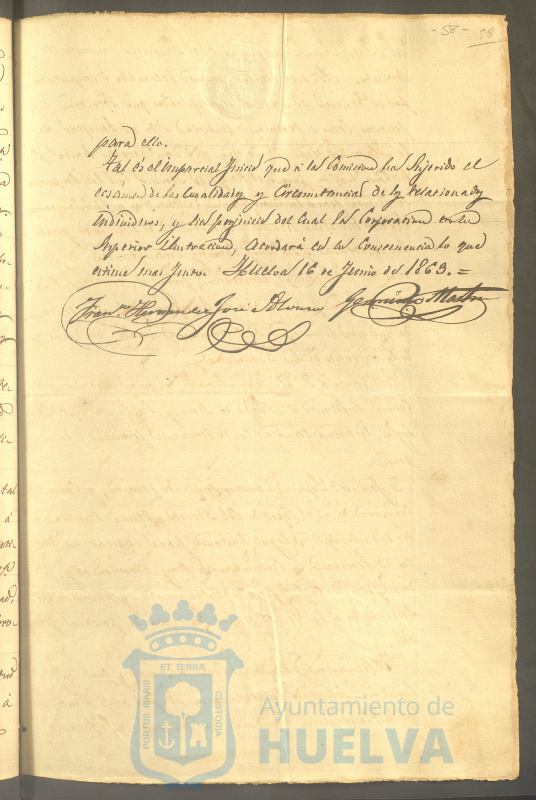 -58- 58
para ello.
Tal és el imparcial Juicio que á la Comision ha Sujerido el
ecsámen de las Cualidades y Circunstancias de los relacionados
individuos, y sin perjuicio del Cual la Corporacion en su
Superior ilustracion, acordará en su Consecuencia lo que
estime mas Justo. Huelva 16 de Junio de 1863. =
Fran.co Hernandez José Alonso Martin
PORTUS MARIS ET TERRÆ CUSTODIA
Ayuntamiento de
HUELVA